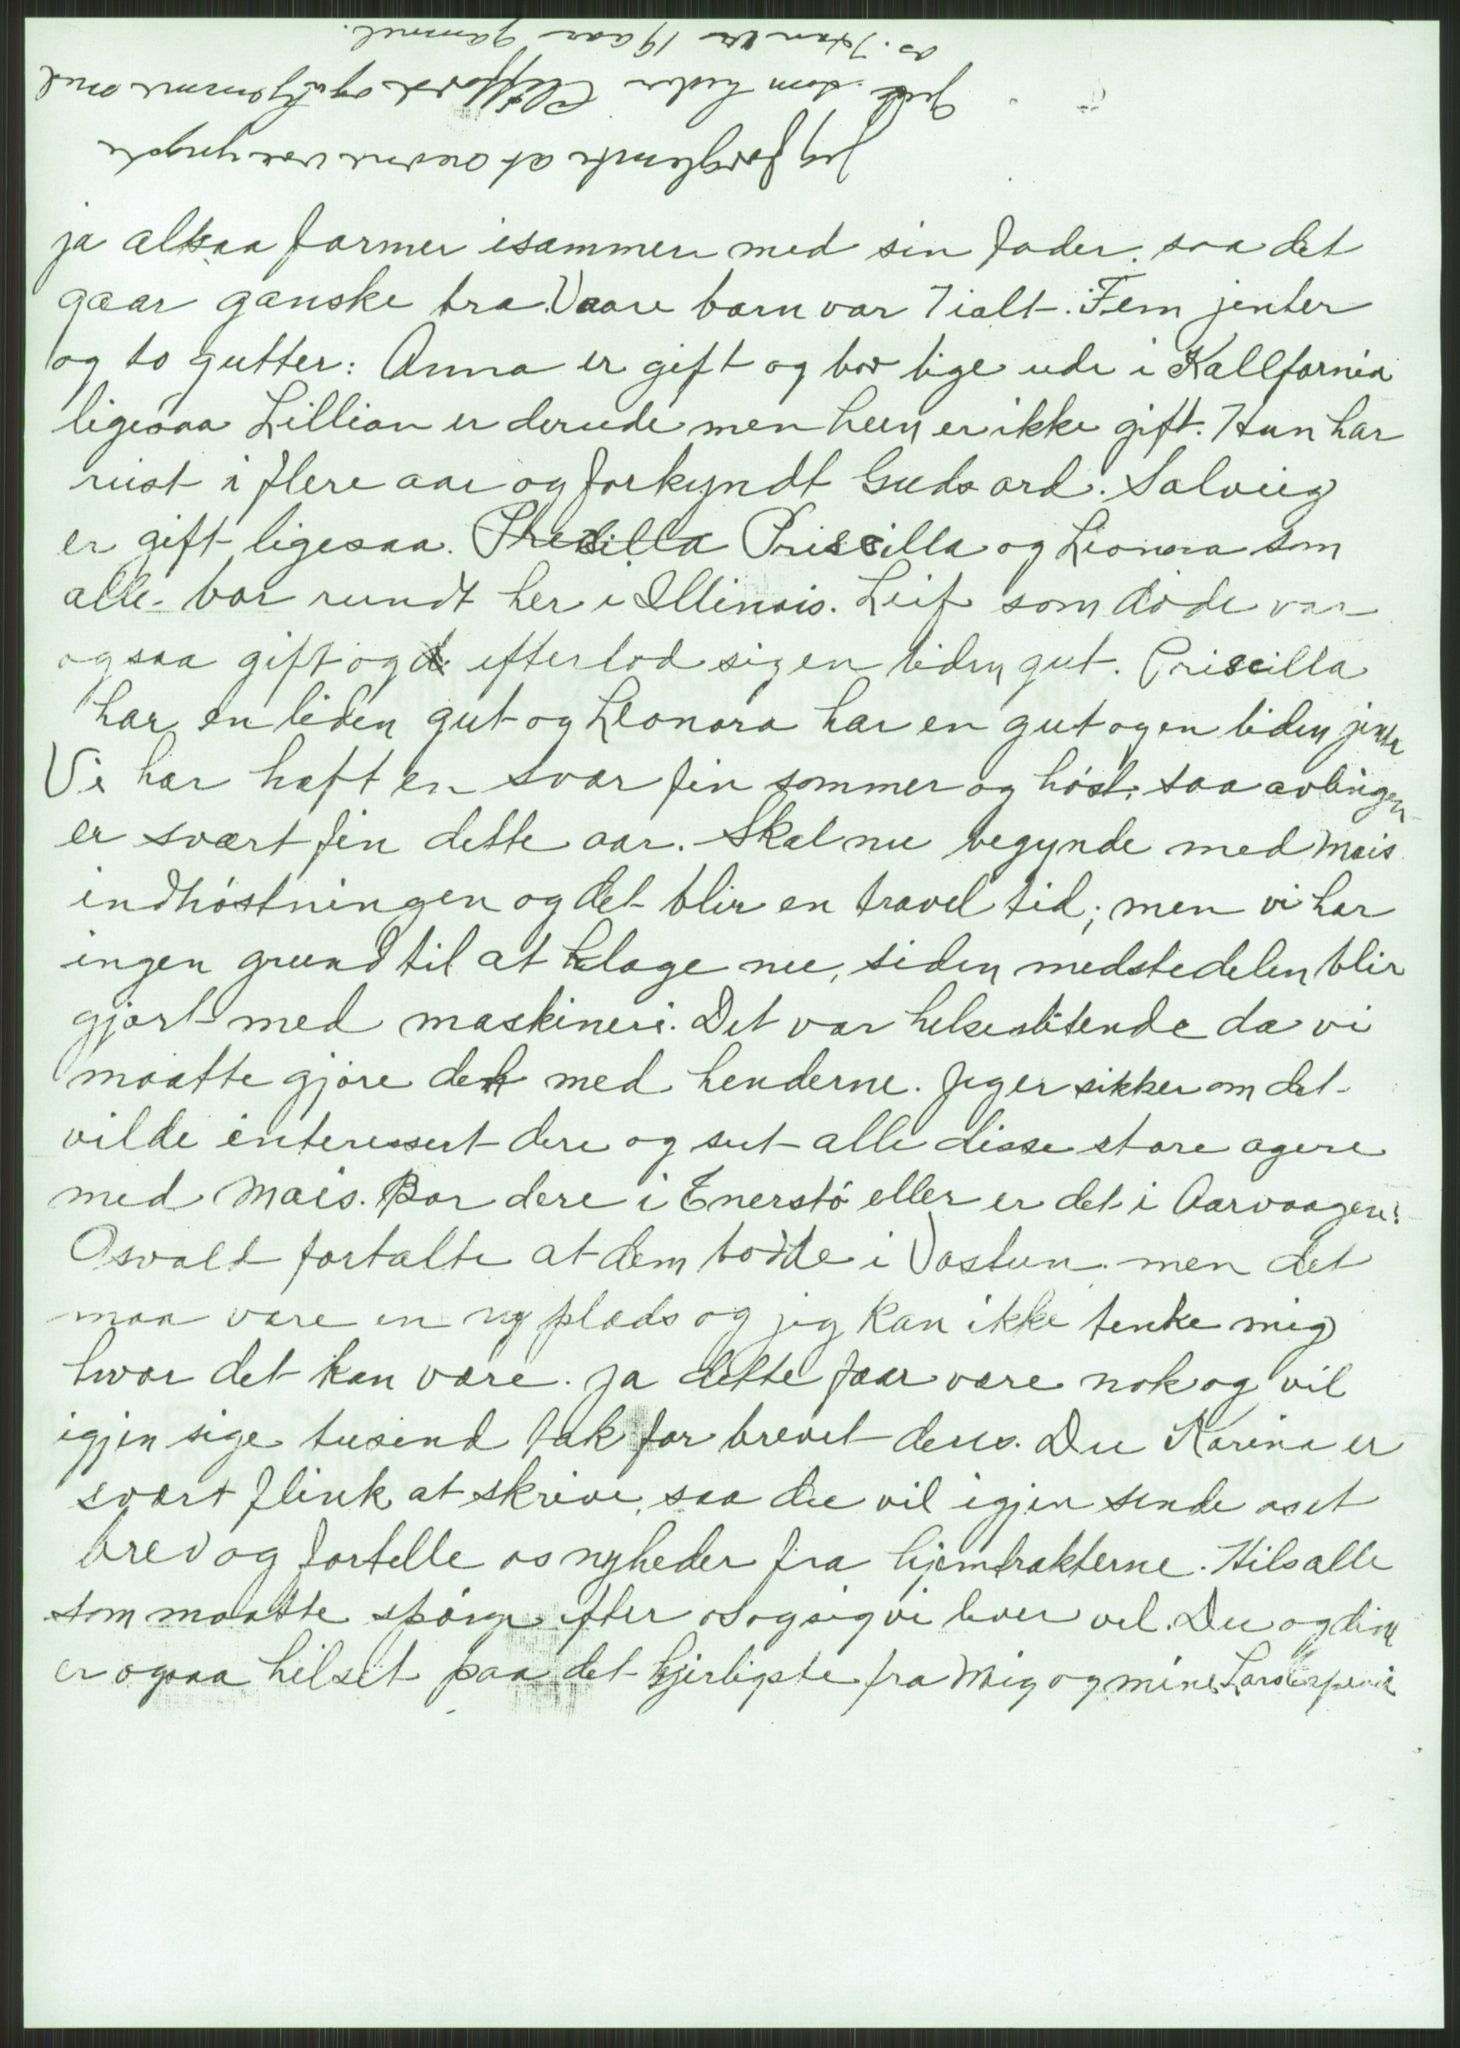 Jeg forglemte at nævne vor yngste
Gut. som heder Clifford og er hjemme med
os. Han er 19 aar gammel.
ja altsaa farmer isammen med sin fader. saa det
gaar ganske bra. Vaare barn var 7 ialt. Fem jenter
og to gutter: Anna er gift og bor lige ude i Kallfornia
ligesaa Lillian er derude men hun er ikke gift. Han har
riist i flere aar og forkyndt Guds ord. Solveig
er gift ligesaa. Presilla Priscilla og Leonora som
alle bor rundt her i Illinois. Leif som døde var
ogsaa gift og efterlod sig en liden gut. Priscilla
har en liden gut og Leonora har en gut og en liden jente
Vi har haft en svær fin sommer og høst. saa avlingen
er svært fin dette aar. Skal nu begynde med Mais
indhøstningen og det blir en travel tid; men vi har
ingen grund til at klage nu, siden medstedelen blir
gjort med maskineri. Det var helseslitende da vi
maatte gjøre det med henderne. Jeg er sikker om det
vilde interessert dere og set alle disse store agere
med Mais. Bor dere i Enerstø eller er det i Aarvaagen?
Osvald fortalte at dem bodde i Vastun men det
maa være en ny plads og jeg kan ikke tenke mig
hvor det kan være. Ja dette faar være nok og vil
igjen sige tusend tak for brevet deres. Du Karina er
svært flink at skrive, saa du vil igjen sende os et
brev og fortelle os nyheder fra hjemtrakterne. Hils alle
som maatte spørge efter os og sig vi lever vel. Du og dine
er ogsaa hilset paa det kjerligste fra Mig og mine, Lars